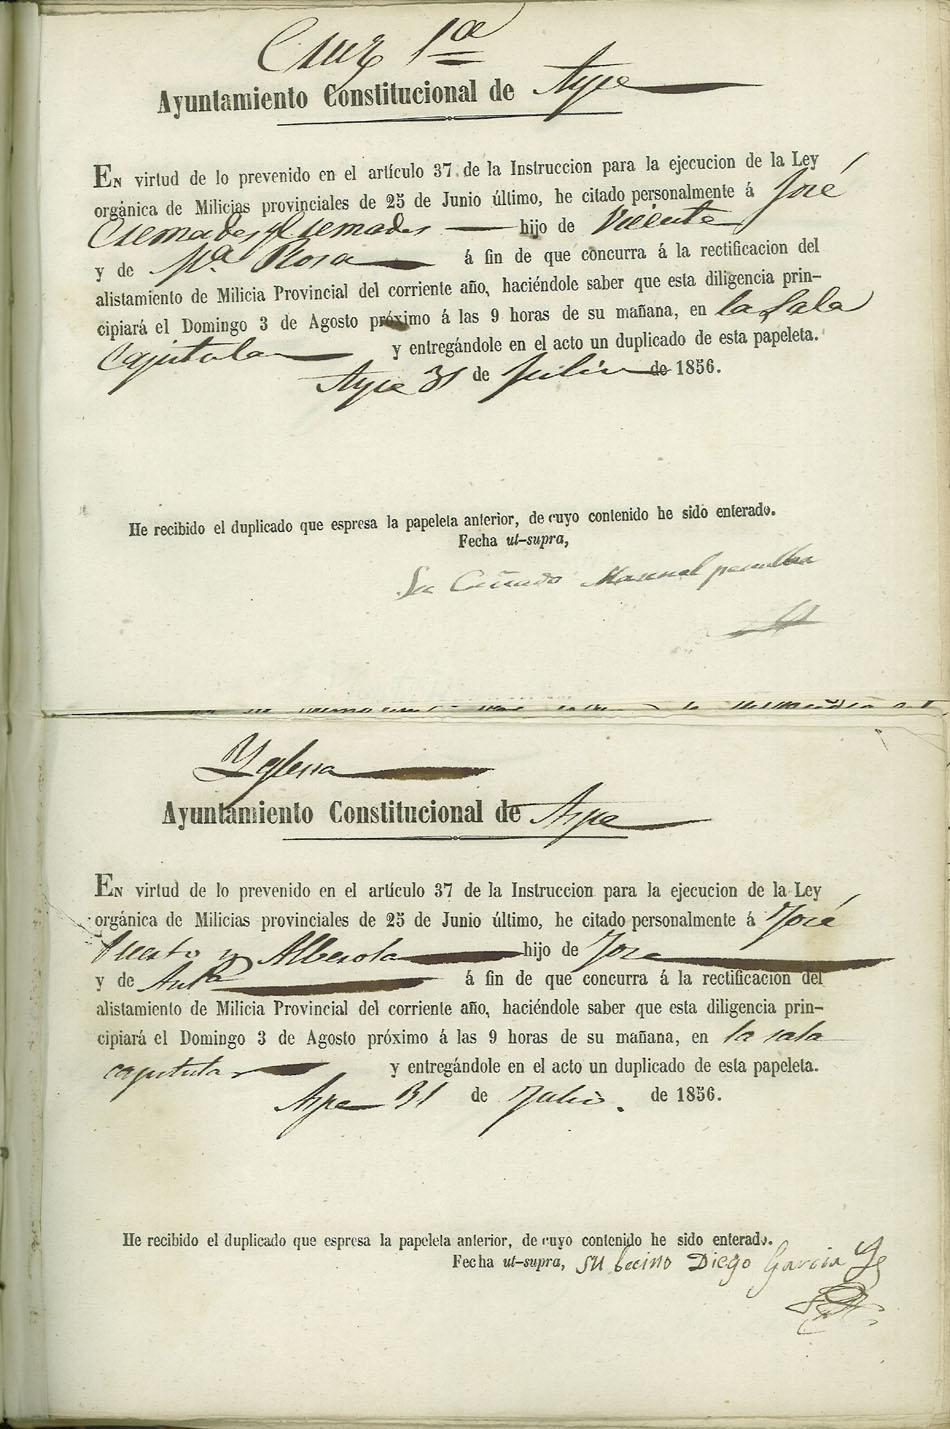 Cruz 1ª
Ayuntamiento Constitucional de Aspe
EN virtud de lo prevenido en el artículo 37 de la Instruccion para la ejecucion de la Ley
orgánica de Milicias provinciales de 25 de Junio último, he citado personalmente á José
Cremades y Cremades hijo de Vicente
y de Mª Rosa á fin de que concurra á la rectificacion del
alistamiento de Milicia Provincial del corriente año, haciéndole saber que esta diligencia prin-
cipiará el Domingo 3 de Agosto próximo á las 9 horas de su mañana, en la Sala
Capitular y entregándole en el acto un duplicado de esta papeleta.
Aspe 31 de Julio de 1856.
He recibido el duplicado que espresa la papeleta anterior, de cuyo contenido he sido enterado.
Fecha ut-supra,
Su Cuñado Manuel
Yglesia
Ayuntamiento Constitucional de Aspe
EN virtud de lo prevenido en el artículo 37 de la Instruccion para la ejecucion de la Ley
orgánica de Milicias provinciales de 25 de Junio último, he citado personalmente á José
y Alberola hijo de José
y de Antª á fin de que concurra á la rectificacion del
alistamiento de Milicia Provincial del corriente año, haciéndole saber que esta diligencia prin-
cipiará el Domingo 3 de Agosto próximo á las 9 horas de su mañana, en la sala
capitular y entregándole en el acto un duplicado de esta papeleta.
Aspe 31 de Julio. de 1856.
He recibido el duplicado que espresa la papeleta anterior, de cuyo contenido he sido enterado.
Fecha ut-supra, su becino Diego Garcia